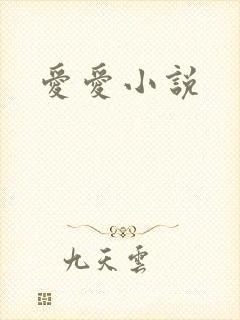 愛愛小説
九天雲